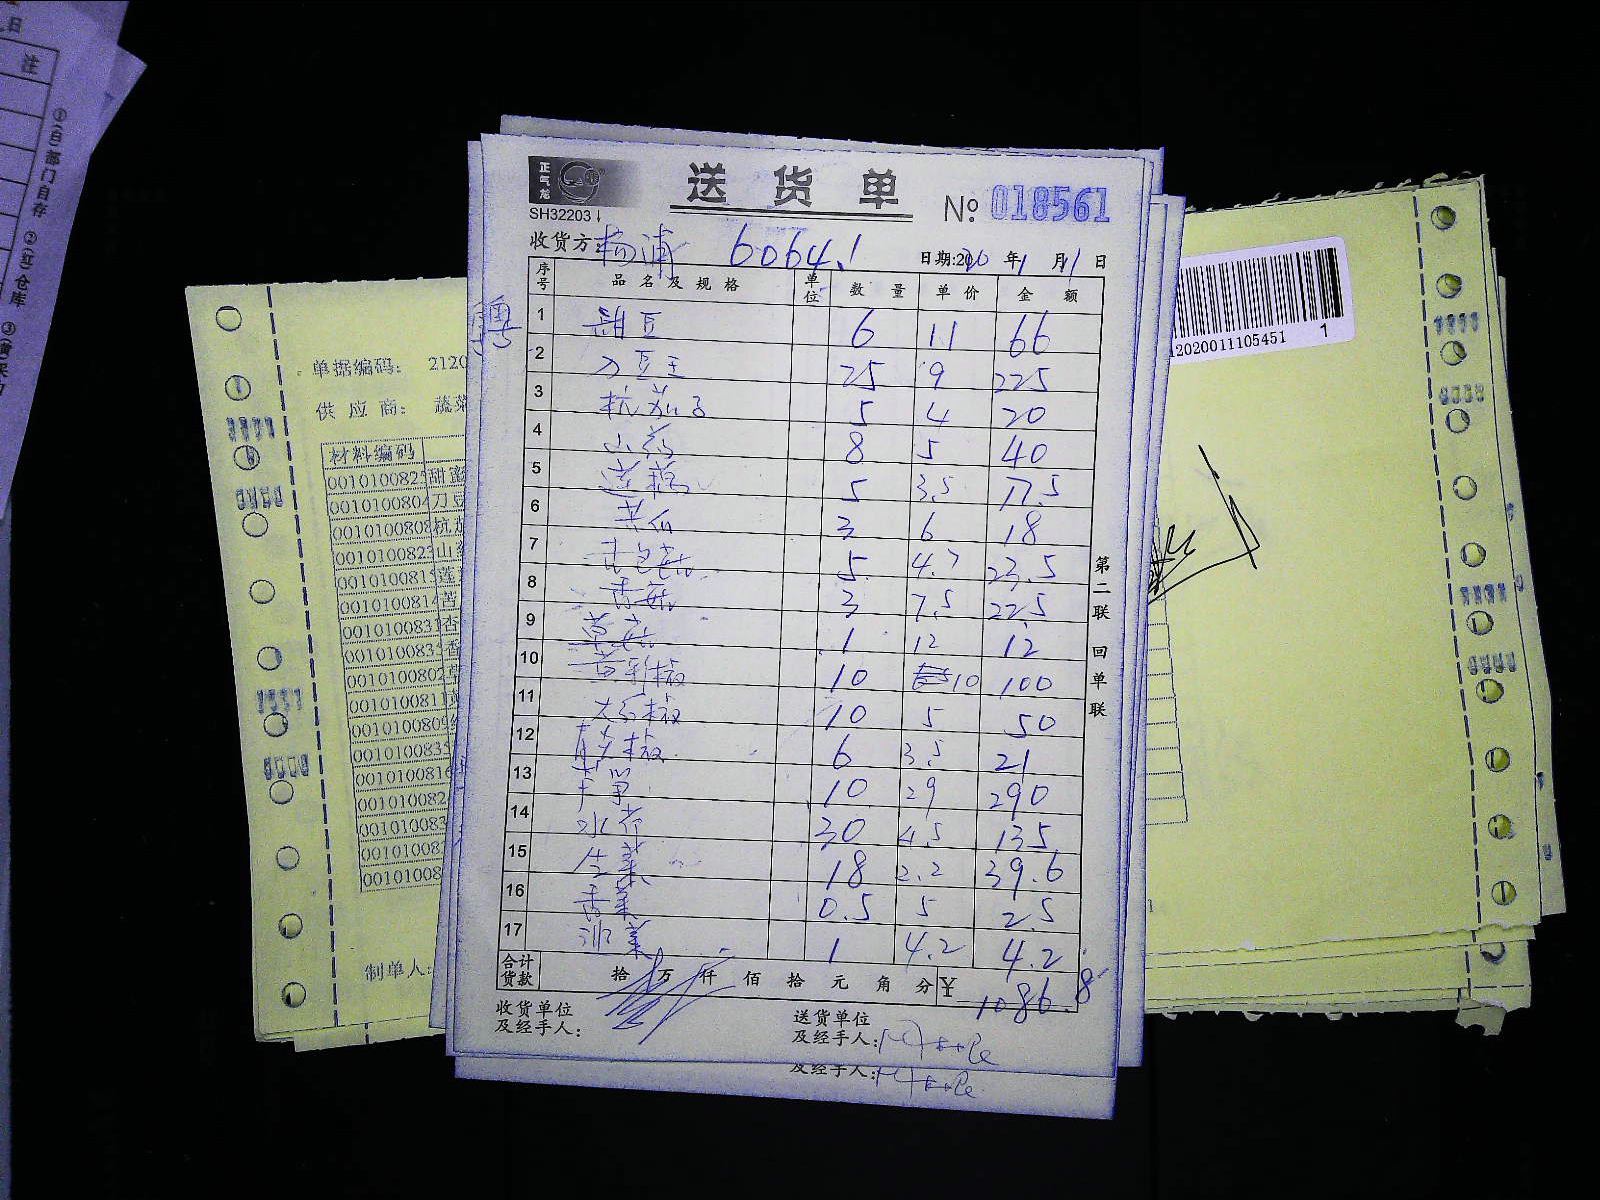 日
注
①(白)部门自存 ②(红)仓库
正气龙
SH32203
送货单
№ 018561
收货方: 杨浦 6064.1
日期:2020年1月11日
序号 品名及规格 单位 数量 单价 金额
1 甜豆 6 11 66
2 刀豆王 25 9 225
3 杭茄子 5 4 20
4 山药 8 5 40
5 莲藕 5 3.5 17.5
6 苦瓜 3 6 18
7 杏包菇 5 4.7 23.5
8 香菇 3 7.5 22.5
9 草菇 1 12 12
10 黄彩椒 10 10 100
11 大红椒 10 5 50
12 青尖椒 6 3.5 21
13 10 29 290
14 30 4.5 135
15 生菜 18 2.2 39.6
16 香菜 0.5 5 2.5
17 1 4.2 4.2
合计货款 拾 万 仟 佰 拾 元 角 分 ¥ 1086.8
收货单位及经手人:
送货单位及经手人:
及经手人:
第二联 回单联
单据编码: 2120
供应商: 蔬菜
材料编码
001010082 甜蜜
001010080 刀豆
001010080 杭茄
001010082 山
001010081 莲
001010081 苦
001010083 杏
001010083 香
001010080 草
001010081
001010080
001010083
001010081
00101008
00101008
00101008
00101008
制单人:
12020011105451 1